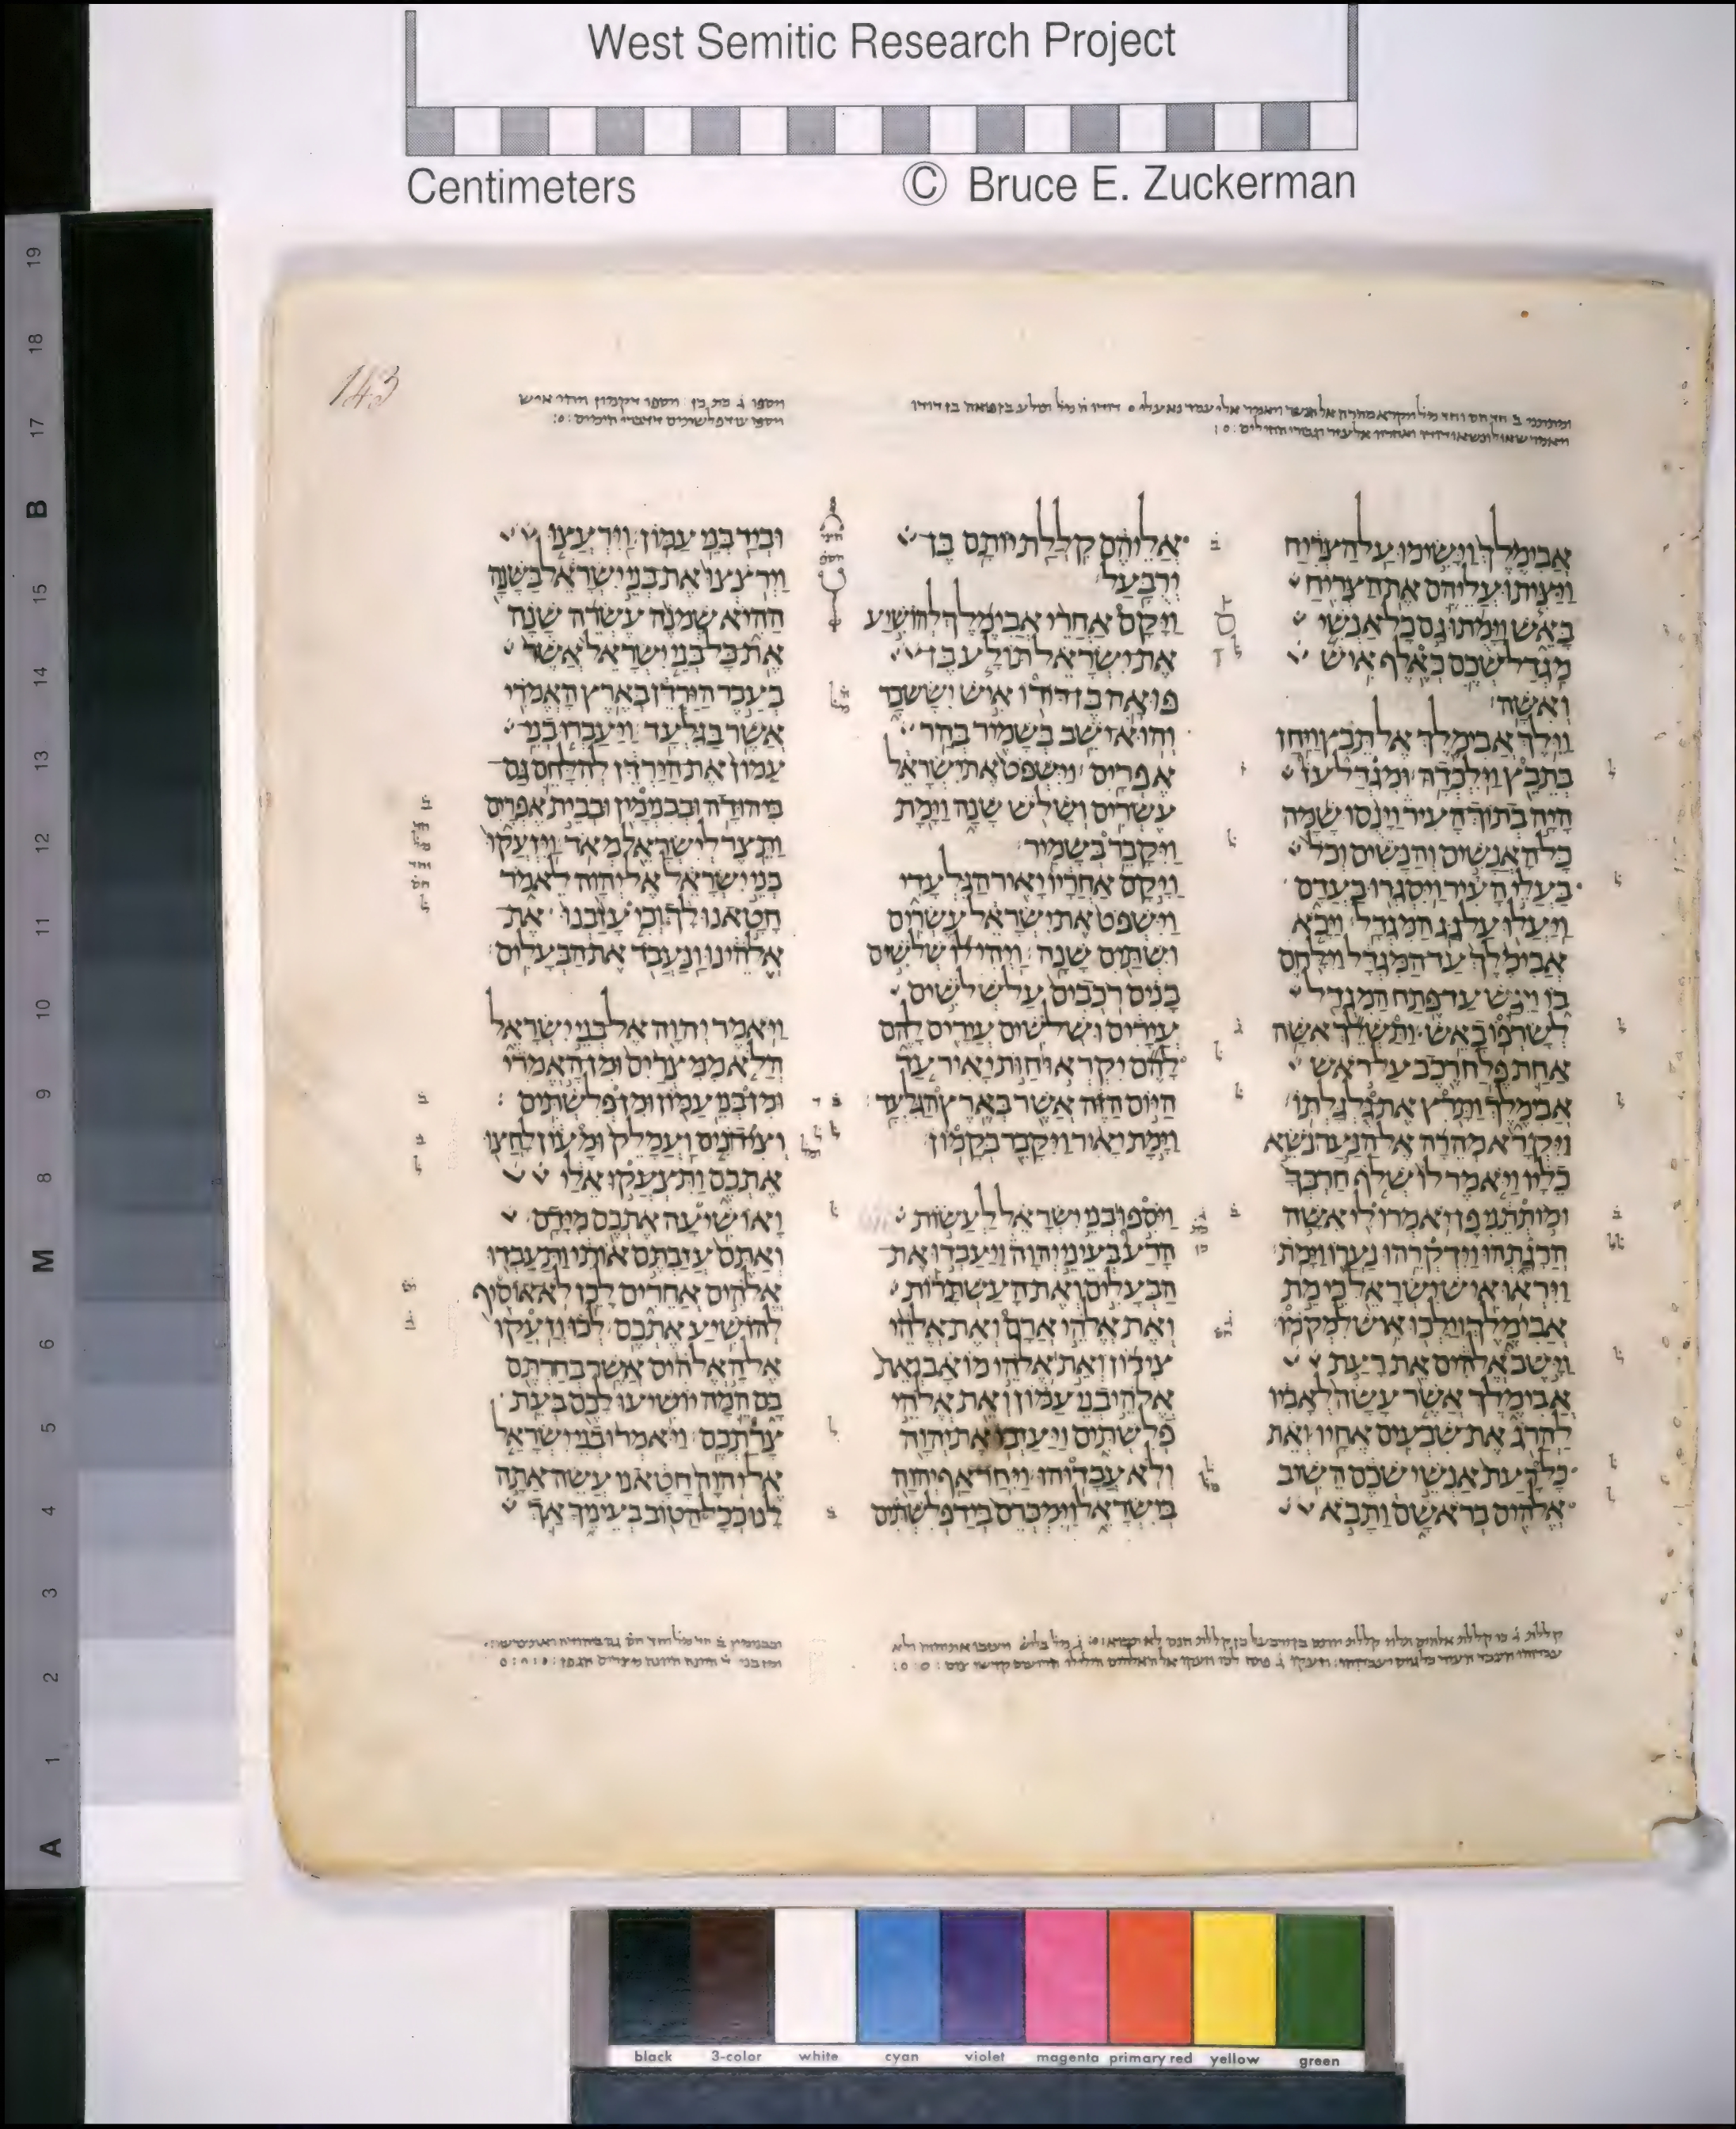 West Semitic Research Project
Centimeters
© Bruce E. Zuckerman
143
אבימלך וישימו על הצריח
ויציתו עליהם את הצריח
באש וימתו גם כל אנשי
מגדל שכם כאלף איש
ואשה׃
וילך אבימלך אל תבץ ויחן
בתבץ וילכדה׃ ומגדל עז
היה בתוך העיר וינסו שמה
כל האנשים והנשים וכל
בעלי העיר ויסגרו בעדם
ויעלו על גג המגדל׃ ויבא
אבימלך עד המגדל וילחם
בו ויגש עד פתח המגדל
לשרפו באש׃ ותשלך אשה
אחת פלח רכב על ראש
אבימלך ותרץ את גלגלתו׃
ויקרא מהרה אל הנער נשא
כליו ויאמר לו שלף חרבך
ומותתני פן יאמרו לי אשה
הרגתהו וידקרהו נערו וימת׃
ויראו איש ישראל כי מת
אבימלך וילכו איש למקמו׃
וישב אלהים את רעת
אבימלך אשר עשה לאביו
להרג את שבעים אחיו׃ ואת
כל רעת אנשי שכם השיב
אלהים בראשם ותבא
אליהם קללת יותם בן
ירבעל׃
ויקם אחרי אבימלך להושיע
את ישראל תולע בן
פואה בן דודו איש יששכר
והוא ישב בשמיר בהר
אפרים׃ וישפט את ישראל
עשרים ושלש שנה וימת
ויקבר בשמיר׃
ויקם אחריו יאיר הגלעדי
וישפט את ישראל עשרים
ושתים שנה׃ ויהי לו שלשים
בנים רכבים על שלשים
עירים ושלשים עירים להם
להם יקראו חות יאיר עד
היום הזה אשר בארץ הגלעד׃
וימת יאיר ויקבר בקמון׃
ויספו בני ישראל לעשות
הרע בעיני יהוה ויעבדו את
הבעלים ואת העשתרות
ואת אלהי ארם ואת אלהי
צידון ואת אלהי מואב ואת
אלהי בני עמון ואת אלהי
פלשתים ויעזבו את יהוה
ולא עבדוהו׃ ויחר אף יהוה
בישראל וימכרם ביד פלשתים
וביד בני עמון׃ וירעצו
וירצצו את בני ישראל בשנה
ההיא שמנה עשרה שנה
את כל בני ישראל אשר
בעבר הירדן בארץ האמרי
אשר בגלעד׃ ויעברו בני
עמון את הירדן להלחם גם
ביהודה ובבנימין ובבית אפרים
ותצר לישראל מאד׃ ויזעקו
בני ישראל אל יהוה לאמר
חטאנו לך וכי עזבנו את
אלהינו ונעבד את הבעלים׃
ויאמר יהוה אל בני ישראל
הלא ממצרים ומן האמרי
ומן בני עמון ומן פלשתים׃
וצידונים ועמלק ומעון לחצו
אתכם ותצעקו אלי
ואושיעה אתכם מידם׃
ואתם עזבתם אותי ותעבדו
אלהים אחרים לכן לא אוסיף
להושיע אתכם׃ לכו וזעקו
אל האלהים אשר בחרתם
בם המה יושיעו לכם בעת
צרתכם׃ ויאמרו בני ישראל
אל יהוה חטאנו עשה אתה
לנו ככל הטוב בעיניך אך
black 3-color white cyan violet magenta primary red yellow green
19
18
17
B
15
14
13
12
11
10
9
8
M
6
5
4
3
2
1
A